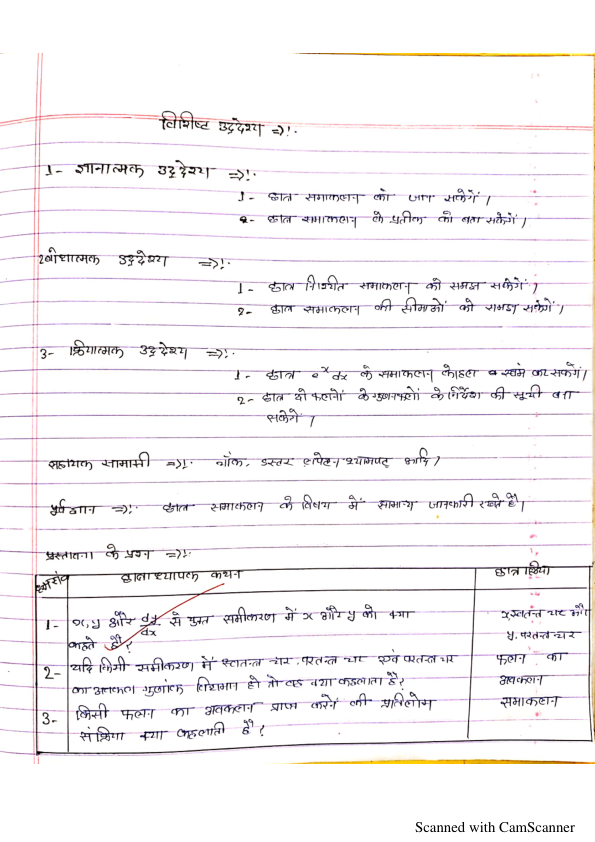 विशिष्ट उद्देश्य =>:-
1- ज्ञानात्मक उद्देश्य =>:-
1- छात्र समाकलन को जान सकेगें।
2- छात्र समाकलन के प्रतीक को बता सकेगें।
2बोधात्मक उद्देश्य =>:-
1- छात्र निश्चित समाकलन को समझ सकेगें।
2- छात्र समाकलन की सीमाओं को समझ सकेगें।
3- क्रियात्मक उद्देश्य =>:-
1- छात्र e^x dx के समाकलन को हल स्वंम कर सकेगें।
2- छात्र दो फलनों के गुणनफलों के निर्देश की सूची बना
सकेगें।
सहायक सामग्री =>:- चॉक, डस्टर, लपेटन श्यामपट्ट आदि।
पूर्व ज्ञान =>:- छात्र समाकलन के विषय में सामान्य जानकारी रखते है।
प्रस्तावना के प्रश्न =>:-
क्र०सं० छात्राध्यापक कथन छात्र क्रिया
1- x, y और dy/dx से युक्त समीकरण में x और y को क्या x स्वतन्त्र चर और
कहते है? y, परतन्त्र चर
2- यदि किसी समीकरण में स्वतन्त्र चर, परतन्त्र चर एवं परतन्त्र चर फलन का
का अवकल गुणांक विद्यमान हो तो वह क्या कहलाता है? अवकलन
3- किसी फलन का अवकलन प्राप्त करने की प्रतिलोम समाकलन
संक्रिया क्या कहलाती है?
Scanned with CamScanner